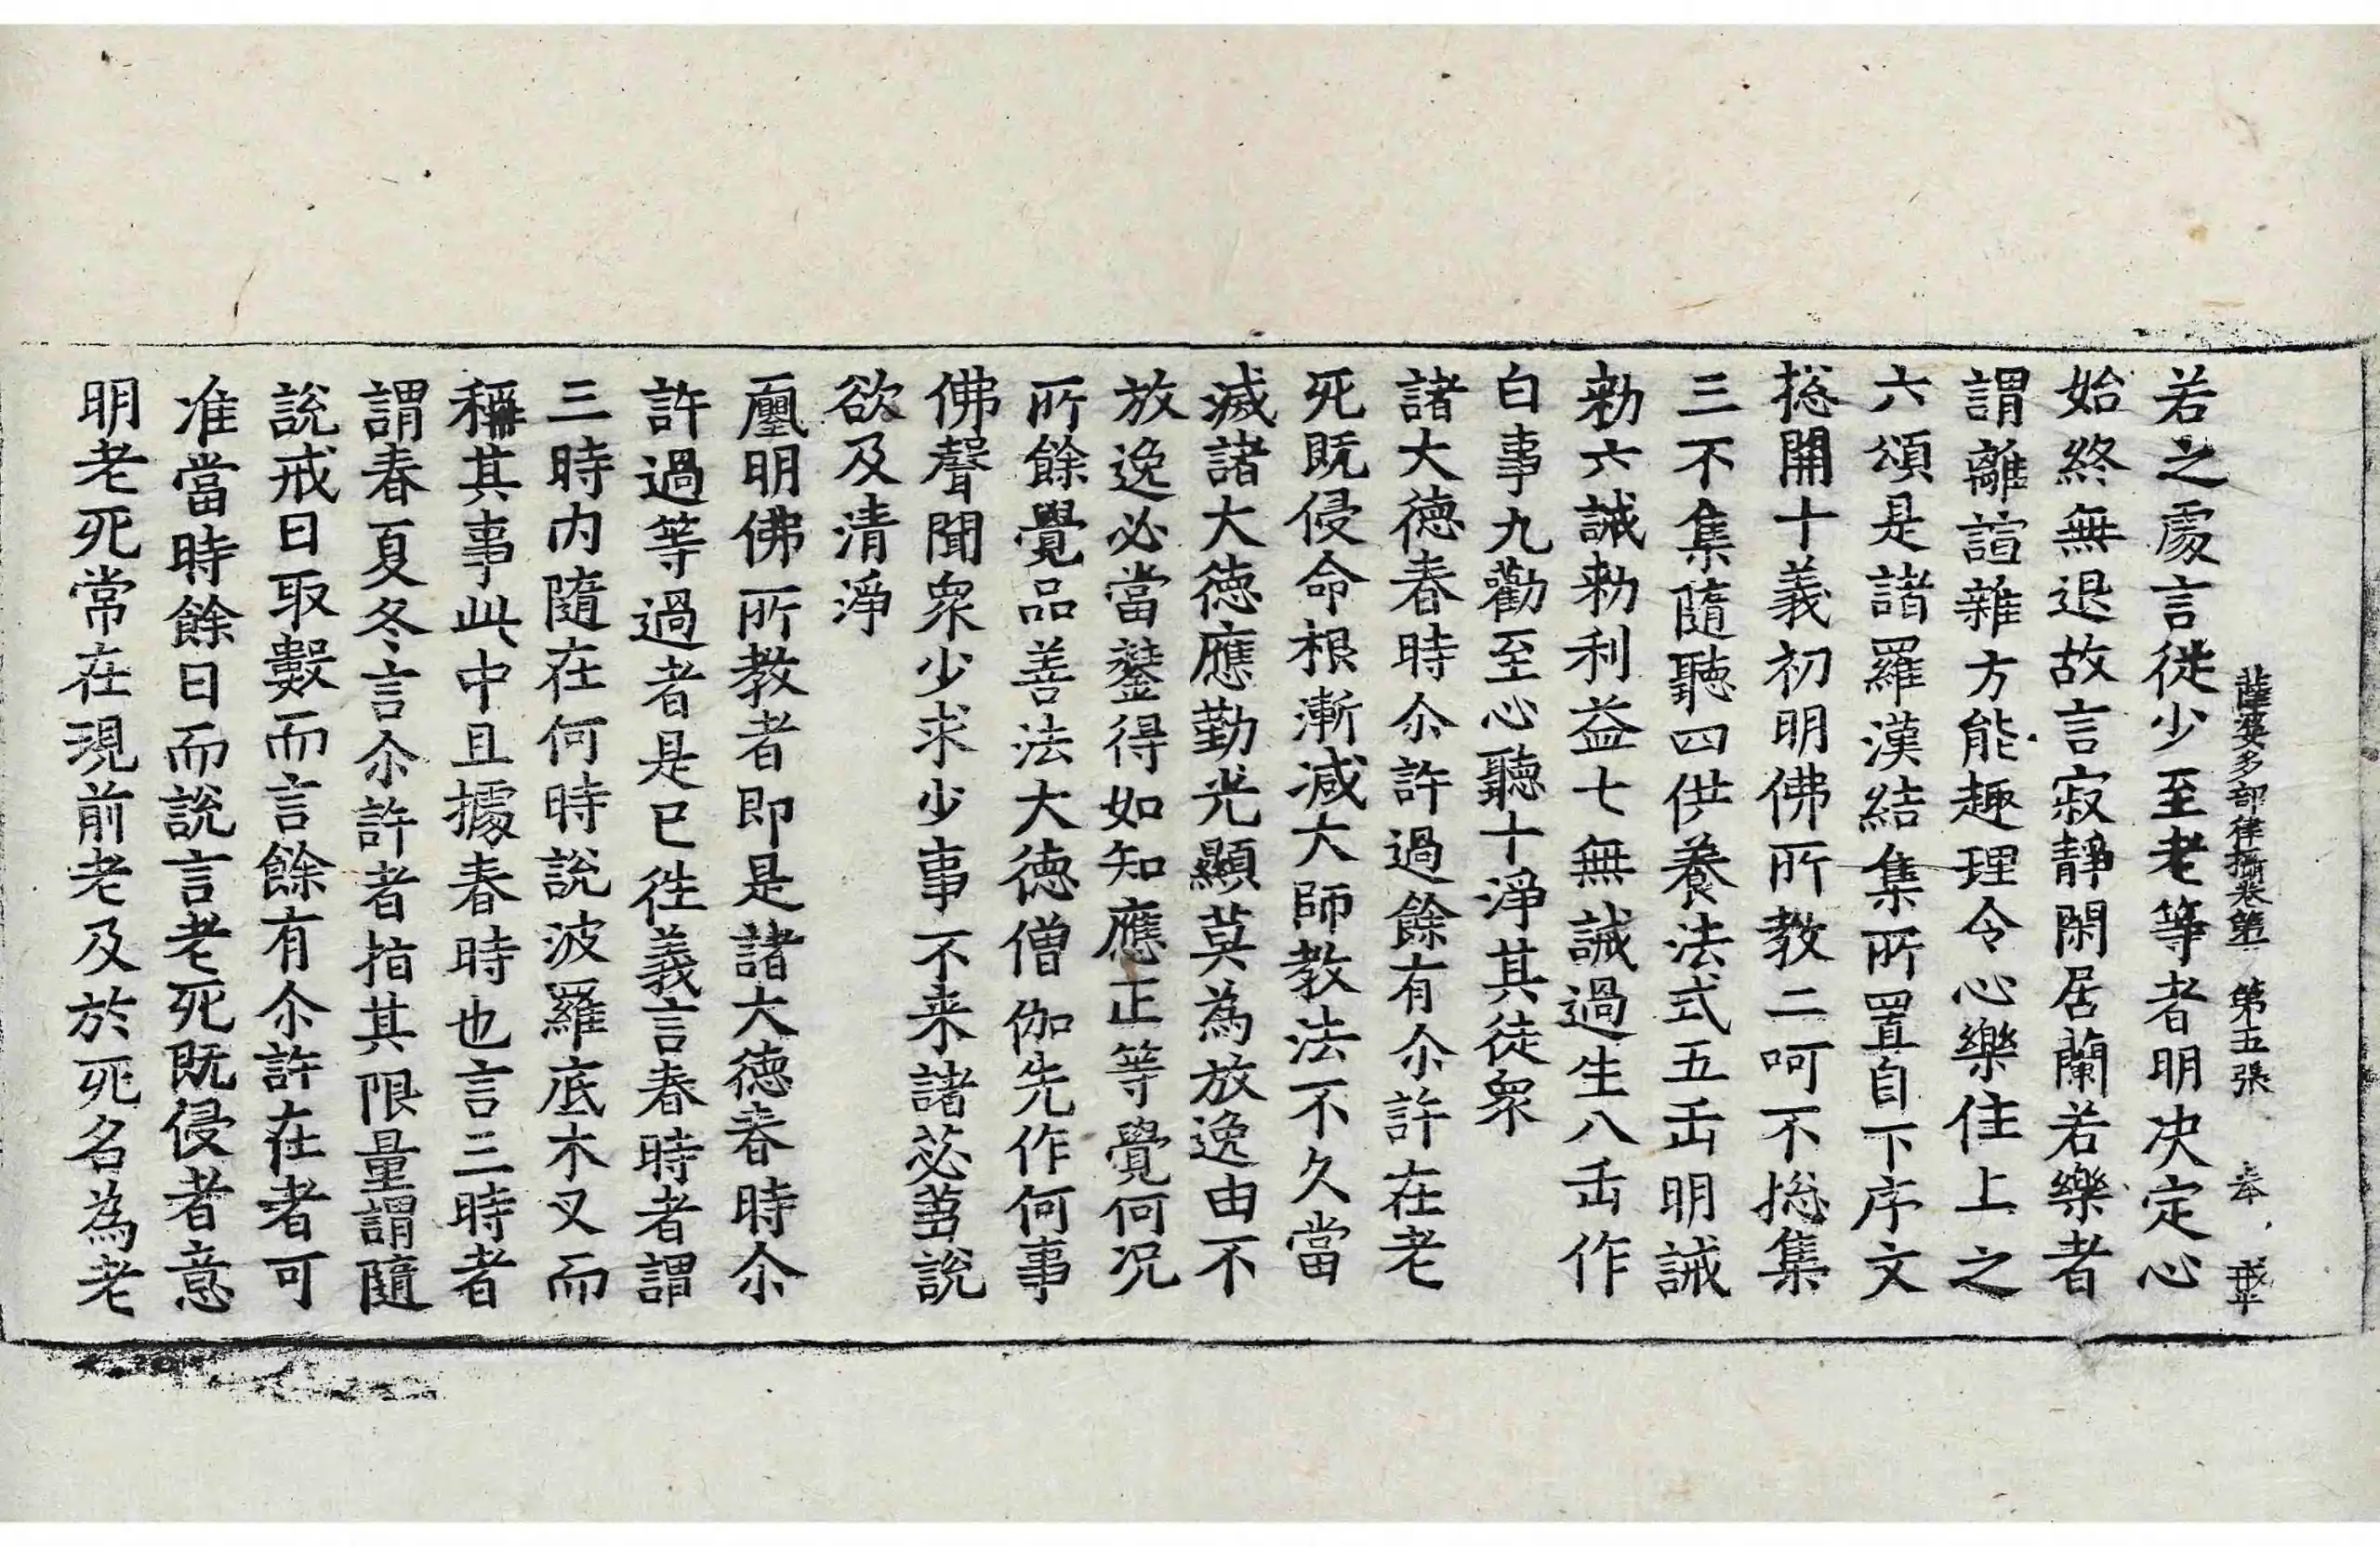 薩婆多部律攝卷第一 第五張 奉
若之處言從少至老等者明决定心
始終無退故言寂靜閑居蘭若樂者
謂離諠雜方能趣理令心樂住上之
六頌是諸羅漢結集所置自下序文
揔開十義初明佛所教二呵不揔集
三不集隨聽四供養法式五𠮷明誡
勑六誡勑利益七無誡過生八𠮷作
白事九勸至心聽十淨其徒衆
諸大德春時尒許過餘有尒許在老
死既侵命根漸减大師教法不久當
滅諸大德應勤光顯莫為放逸由不
放逸必當證得如知應正等覺何况
所餘覺品善法大德僧伽先作何事
佛聲聞衆少求少事不来諸苾蒭說
欲及清淨
曰明佛所教者即是諸大德春時尒
許過等過者是已往義言春時者謂
三時内隨在何時說波羅底木叉而
稱其事此中且據春時也言三時者
謂春夏冬言尒許者拍其限量謂隨
說戒日取數而言餘有尒許在者可
准當時餘日而說言老死既侵者意
明老死常在現前老及於死名為老